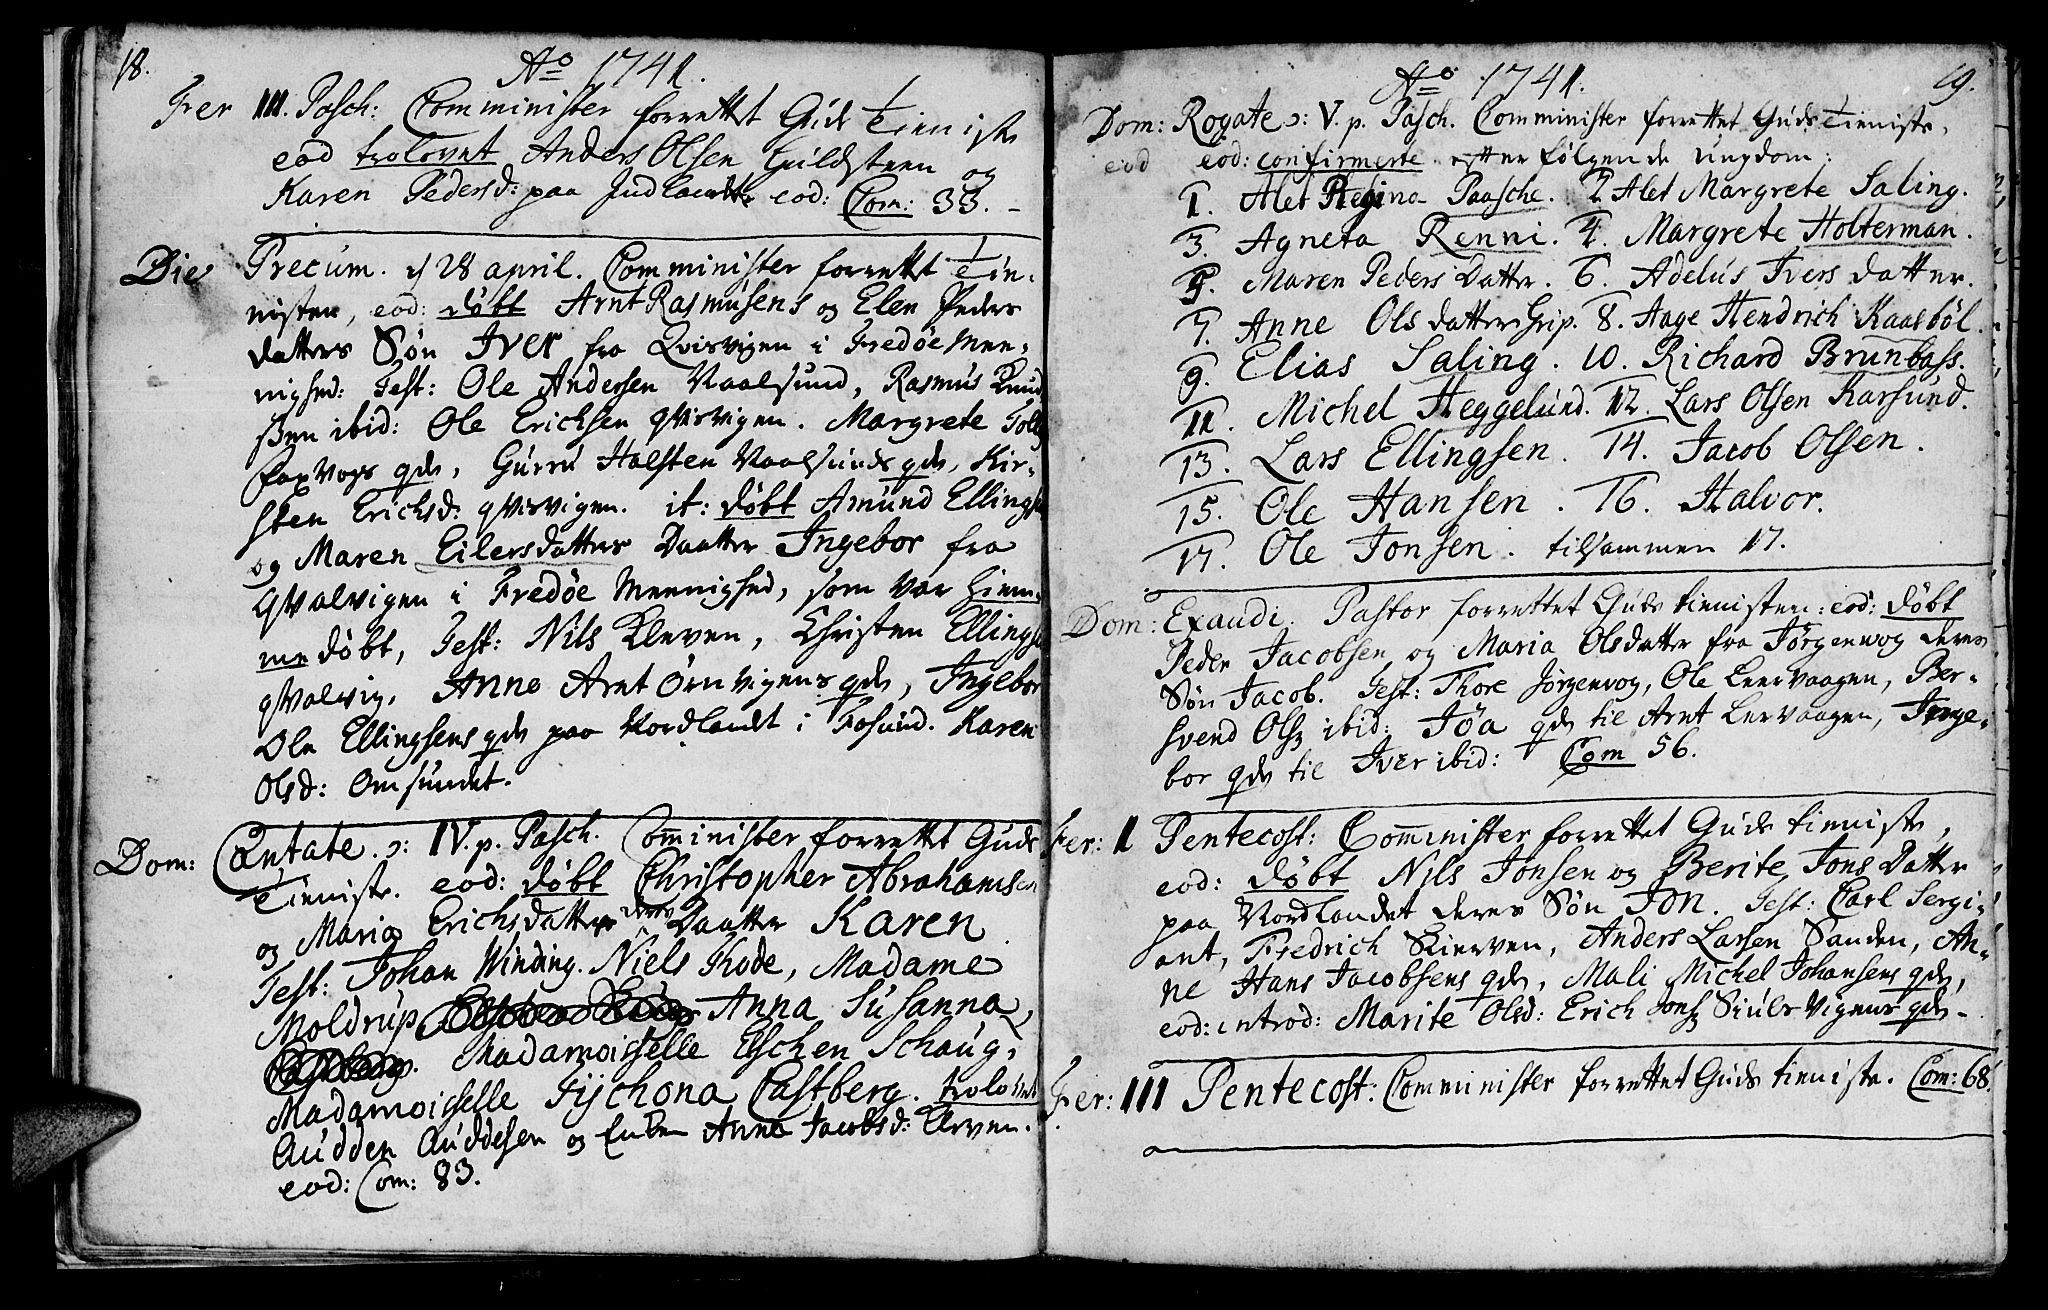 18.
Aº 1741.
Fer III. Pasch: Comminister forrettet Guds Tieniste
eod trolovet Anders Olsen Guldsteen og
Karen Pedersd: paa Indlandet eod: Com: 33.
Die Precum. d 28 april. Comminister forrettet Tie-
nisten, eod: døbt Arnt Rasmusens og Elen Peders
datters Søn Iver fra Qvisvigen i Fredøe Mee-
nighed: Test: Ole Andersen Vaalsund, Rasmus Knud
sen ibid: Ole Erichsen qvisvigen. Margrete Tolle
qde, Gurru Halsten Vaalsunds qde, Kir-
sten Erichsd: qvisvigen. it: døbt Amund Ellings
og Maren Eilersdatters Daatter Ingebor fra
qvalvigen i Fredøe Meenighed, som var hiem-
me døbt, Test: Nils Kleven, Christen Ellings
qvalvig, Anne Arnt Ørnvigens qde, Ingebor
Ole Ellingsens qde paa Nordlandet i Fosund. Karen
Olsd: Omsundet.
Dom: Cantate. ɔ: IV. p. Pasch. Comminister forrettet Guds
Tieniste. eod: døbt Christopher Abrahamsen
og Maria Erichsdatter deres Daatter Karen
Test: Johan Winding. Niels Thode, Madame
Moldrup Anna Susanna
Madamoisselle Elschen Schaug,
Madamoisselle Fijchona Castberg. trolovet
Audden Auddesen og Enken Anne Jacobsd: Kleven.
eod: Com: 83.
19.
Aº 1741.
Dom: Rogate ɔ: V. p. Pasch. Comminister forrettet Guds Tieniste,
eod eod: confirmerte efter følgende ungdom:
1. Alet Regina Paasche. 2 Alet Margrete Saling.
3. Agneta Renni. 4. Margrete Holterman.
5. Maren Peders Datter. 6. Adelus Ivers datter.
7. Anne Olsdatter Grip. 8. Aage Hendrich Kaasbøl.
9. Elias Saling. 10. Richard Brunbass.
11. Michel Heggelund. 12. Lars Olsen Karsund.
13. Lars Ellingsen. 14. Jacob Olsen.
15. Ole Hansen. 16. Halvor.
17. Ole Jonsen. tilsammen 17.
Dom: Exaudi. Pastor forrettet Guds tienisten: eod: døbt
Peder Jacobsen og Maria Olsdatter fra Jørgenvog deres
Søn Jacob. Test: Thore Jørgenvog, Ole Leervaagen, Ber-
svend Ols. ibid: Jøa qde til Arnt Lervaagen, Inge-
bor qde til Iver ibid: Com 56.
Fer: II Pentecost: Comminister forrettet Guds tieniste,
eod: døbt Nils Jonsen og Berite Jons Datter
paa Nordlandet deres Søn Jon. Test: Carl Sergi-
ant, Fredrich Kierven, Anders Larsen Sanden, An-
ne Hans Jacobsens qde, Mali Michel Johansens qde,
eod: introd: Marite Olsd: Erich Jons. qde.
Fer: III Pentecost: Comminister forrettet Guds tieniste. Com: 68.